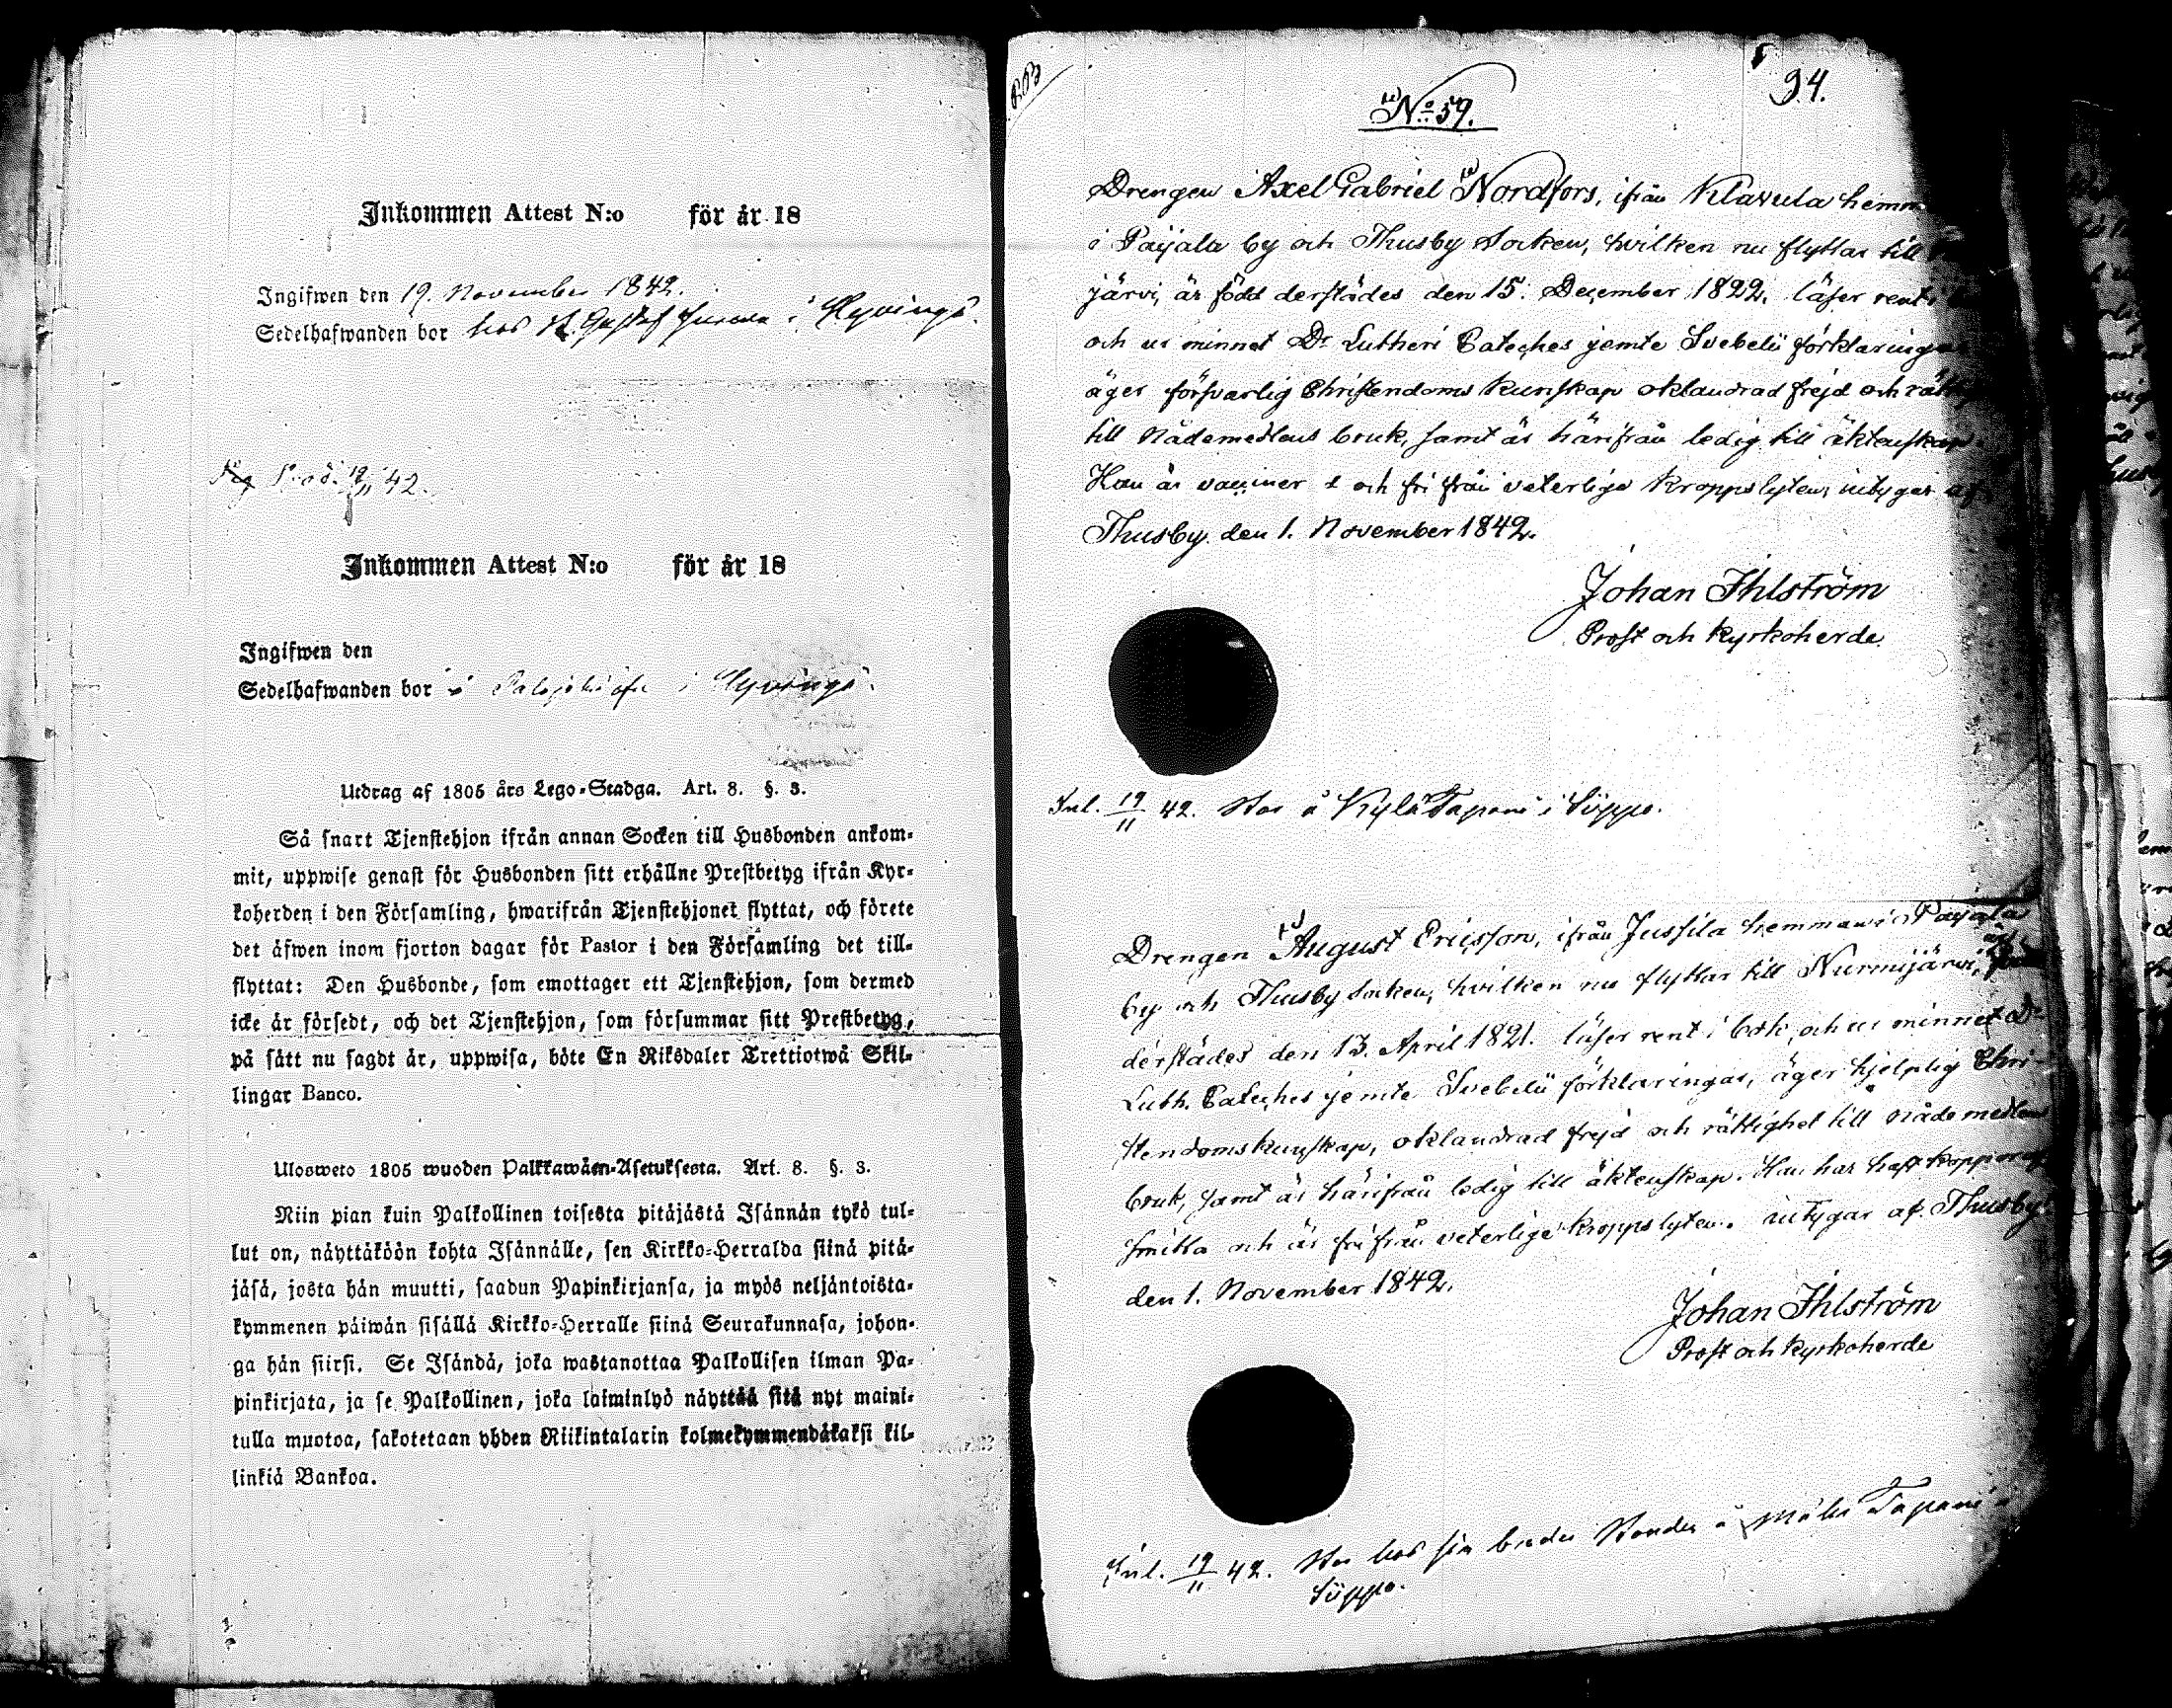 Inkommen Attest N:o för år 18
Ingifwen den 19. November 1842.
Sedelhafwanden bor hos Gustaf i Hyvinge.
Inkommen Attest N:o för år 18
Ingifwen den
Sedelhafwanden bor i Hyvinge.
Utdrag af 1805 års Lego-Stadga. Art. 8. §. 3.
Så snart Tjenstehjon ifrån annan Socken till Husbonden ankom-
mit, uppwise genast för Husbonden sitt erhållne Prestbetyg ifrån Kyr-
koherden i den Församling, hwarifrån Tjenstehjonet flyttat, och förete
det äfwen inom fjorton dagar för Pastor i den Församling det till-
flyttat: Den Husbonde, som emottager ett Tjenstehjon, som dermed
icke är försedt, och det Tjenstehjon, som försummar sitt Prestbetyg,
på sätt nu sagdt är, uppwisa, böte En Riksdaler Trettiotwå Skil-
lingar Banco.
Ulosweto 1805 wuoden Palkkawäen-Asetuksesta. Art. 8. §. 3.
Niin pian kuin Palkollinen toisesta pitäjästä Isännän tykö tul-
lut on, näyttäköön kohta Isännälle, sen Kirkko-Herralda siinä pitä-
jäsä, josta hän muutti, saadun Papinkirjansa, ja myös neljäntoista-
kymmenen päiwän sisällä Kirkko-Herralle siinä Seurakunnasa, johon-
ga hän siirsi. Se Isändä, joka wastanottaa Palkollisen ilman Pa-
pinkirjata, ja se Palkollinen, joka laiminlyö näyttää sitä nyt maini-
tulla muotoa, sakotetaan yhden Riikintalarin kolmekymmendäkaksi kil-
linkiä Bankoa.
94.
No 59.
Drengen Axel Gabriel Nordfors, ifrån Klavula hemm
i Paijala by och Thusby Socken, hvilken nu flyttar till
järvi, är född derstädes den 15. December 1822. läser rent i
och ur minnet Dr Lutheri Cateches jemte Svebelii förklaringar
äger försvarlig Christendoms kunskap oklandrad frejd och
till Nådemedlens bruk, samt är härifrån ledig till äktenskap.
Han är vaccinerad och fri från veterlige kroppslyten, intygar af
Thusby den 1. November 1842.
Johan Ihlström
Prost och Kyrkoherde.
Inl. 19/11 42. Bor å Kylä Tapani i Süppo.
Drengen August Ericsson, ifrån Jussila hemman i Paijala
by och Thusby Socken, hvilken nu flyttar till Nurmijärvi, är född
derstädes den 13. April 1821. läser rent i bok, och ur minnet Dr
Luth. Cateches jemte Svebelii förklaringar, äger hjelplig Chri-
stendomskunskap, oklandrad frejd och rättighet till nådemedlens
bruk, samt är härifrån ledig till äktenskap. Han har haft koppor
smitta och är fri från veterlige kroppslyten. intygar af. Thusby
den 1. November 1842.
Johan Ihlström
Prost och Kyrkoherde
Inl. 19/11 42. Bor hos sin broder å Mäki Tapani i
Süppo.